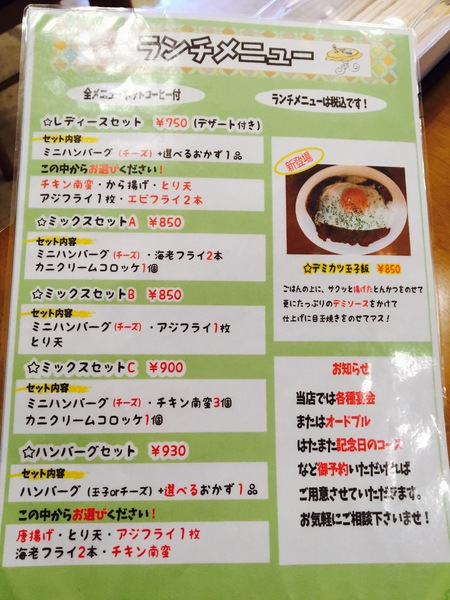 ランチメニュー
全メニューホットコーヒー付
ランチメニューは税込です！
☆レディースセット ￥750 (デザート付き)
セット内容
ミニハンバーグ (チーズ) +選べるおかず1品
この中からお選びください！
チキン南蛮・から揚げ・とり天
アジフライ1枚・エビフライ2本
☆ミックスセットA ￥850
セット内容
ミニハンバーグ (チーズ) ・海老フライ2本
カニクリームコロッケ1個
☆ミックスセットB ￥850
セット内容
ミニハンバーグ (チーズ) ・アジフライ1枚
とり天
☆ミックスセットC ￥900
セット内容
ミニハンバーグ (チーズ) ・チキン南蛮3個
カニクリームコロッケ1個
☆ハンバーグセット ￥930
セット内容
ハンバーグ (玉子orチーズ) +選べるおかず1品
この中からお選びください！
唐揚げ・とり天・アジフライ1枚
海老フライ2本・チキン南蛮
新登場
☆デミカツ玉子飯 ￥850
ごはんの上に、サクッと揚げたとんかつをのせて
更にたっぷりのデミソースをかけて
仕上げに目玉焼きをのせてマス！
お知らせ
当店では各種宴会
またはオードブル
はたまた記念日のコース
など御予約いただければ
ご用意させていただきます。
お気軽にご相談下さいませ！